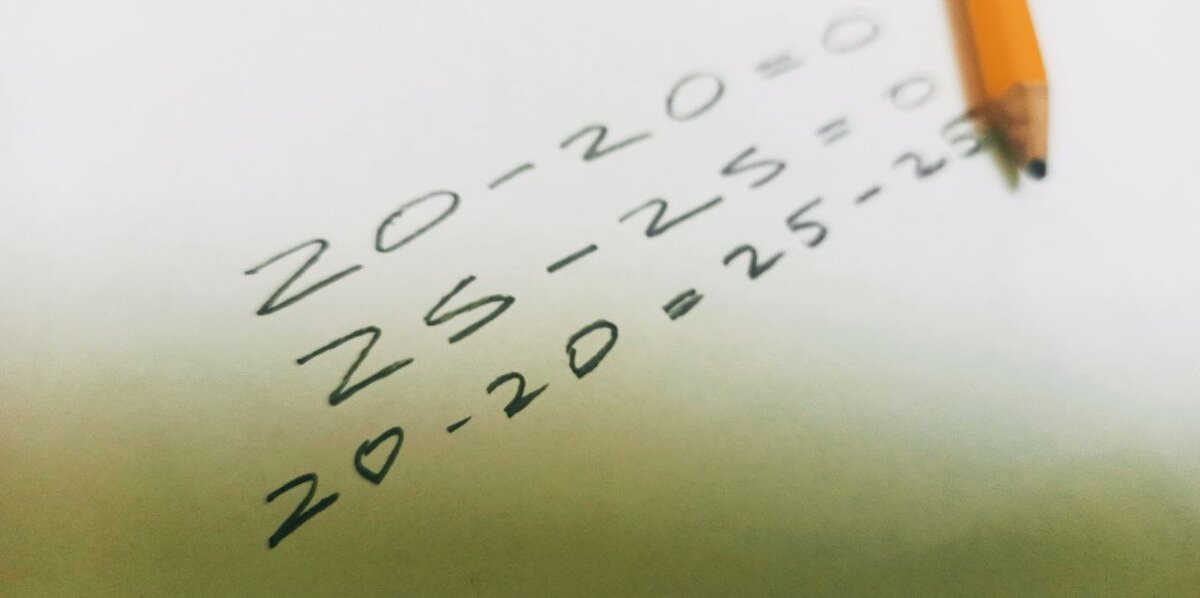 20-20=0
25-25=0
20-20=25-25